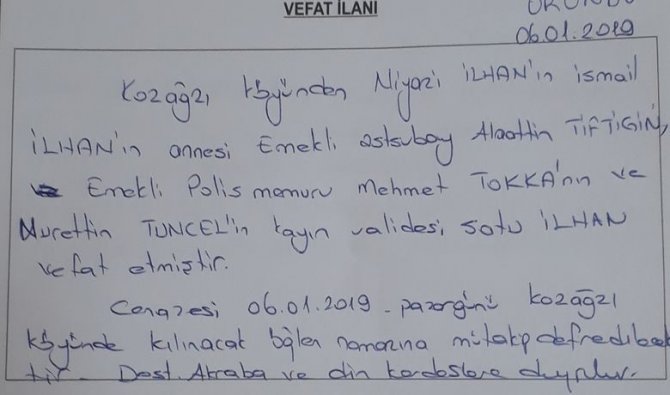 VEFAT İLANI
OKUNDU
06.01.2019
Kozağzı Köyünden Niyazi İLHAN'ın ismail
İLHAN'ın annesi Emekli astsubay Alaattin TİFTİGİN,
Emekli Polis memuru Mehmet TOKKA'nın ve
Nurettin TUNCEL'in kayın validesi satu İLHAN
vefat etmiştir.
Cenazesi 06.01.2019 - pazargünü kozağzı
köyünde kılınacak öğlen namazına mütakip defnedilecek
tir - Dost. Akraba ve din kardeşlere duyrulur.